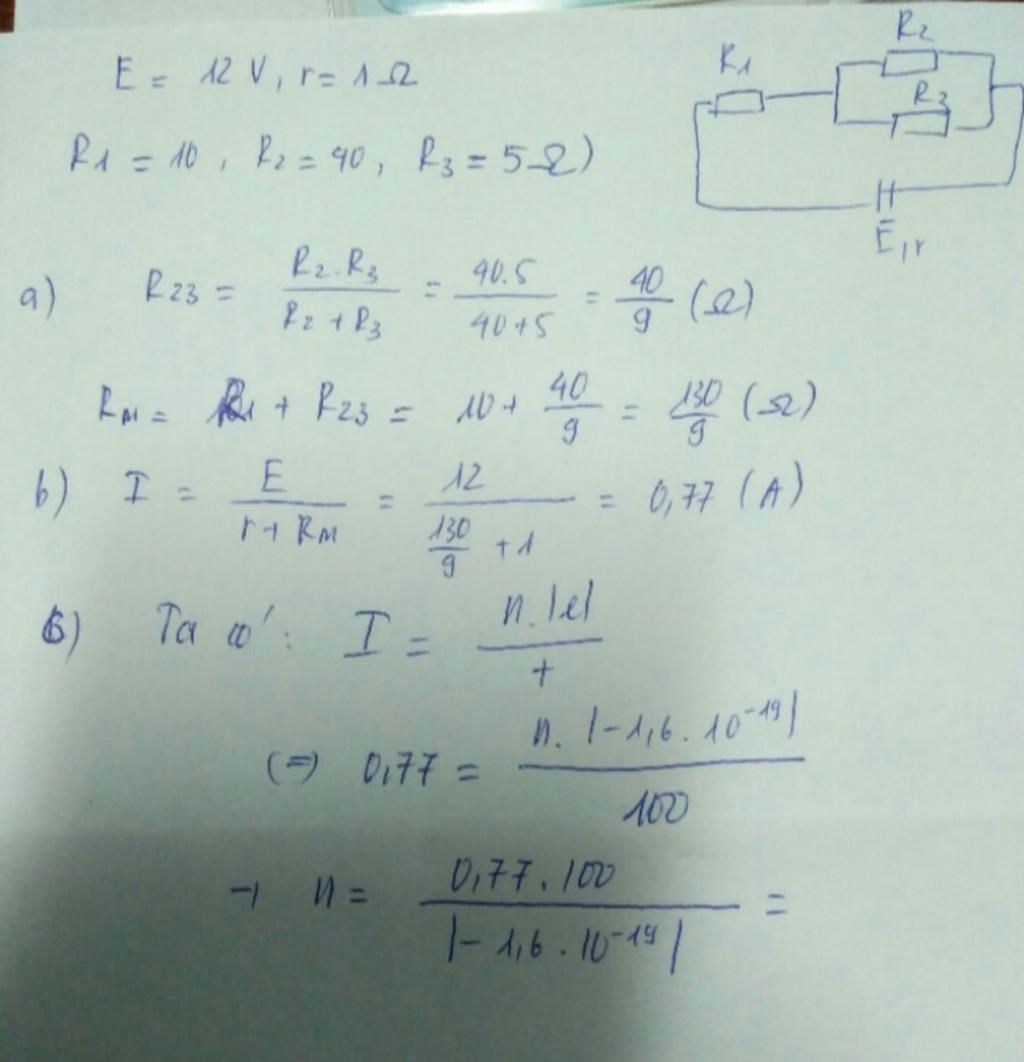 E = 12 V, r = 1 Ω
R1 = 10, R2 = 40, R3 = 5 Ω)
R1
R2
R3
E, r
a) R23 = R2.R3 / R2 + R3 = 40.5 / 40+5 = 40/9 (Ω)
RM = R1 + R23 = 10 + 40/9 = 130/9 (Ω)
b) I = E / r + RM = 12 / 130/9 + 1 = 0,77 (A)
c) Ta có: I = n.|e| / t
(=) 0,77 = n. |-1,6.10^-19| / 100
→ n = 0,77.100 / |-1,6.10^-19| =